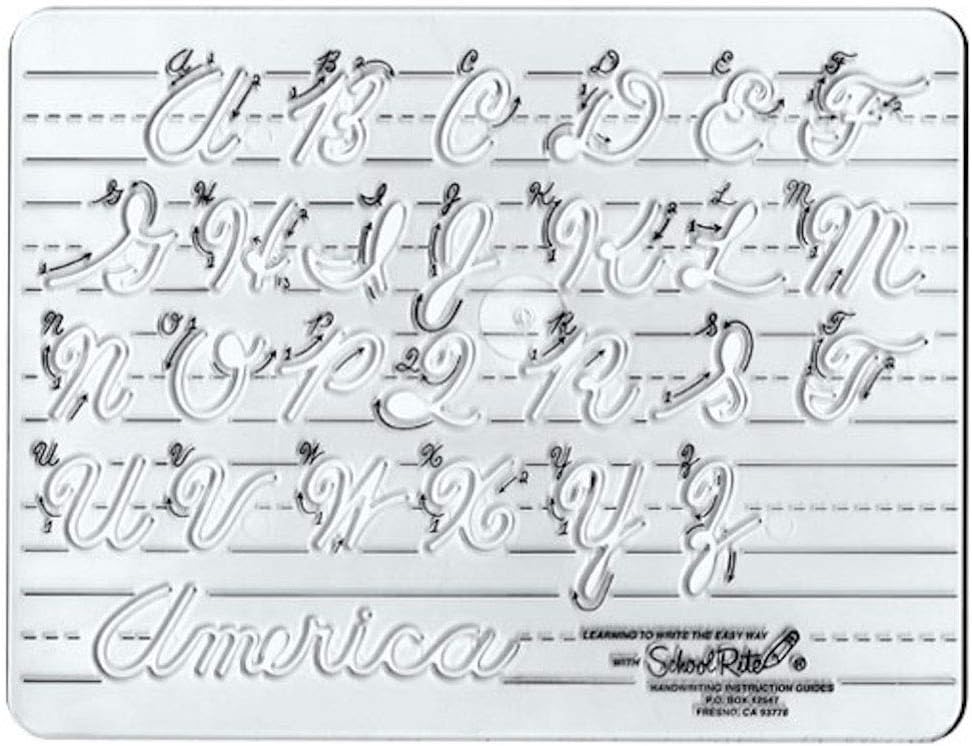 A B C D E F
G H I J K L M
N O P Q R S T
U V W X Y Z
America
LEARNING TO WRITE THE EASY WAY
WITH School Rite ®
HANDWRITING INSTRUCTION GUIDES
P.O. BOX 12647
FRESNO, CA 93778